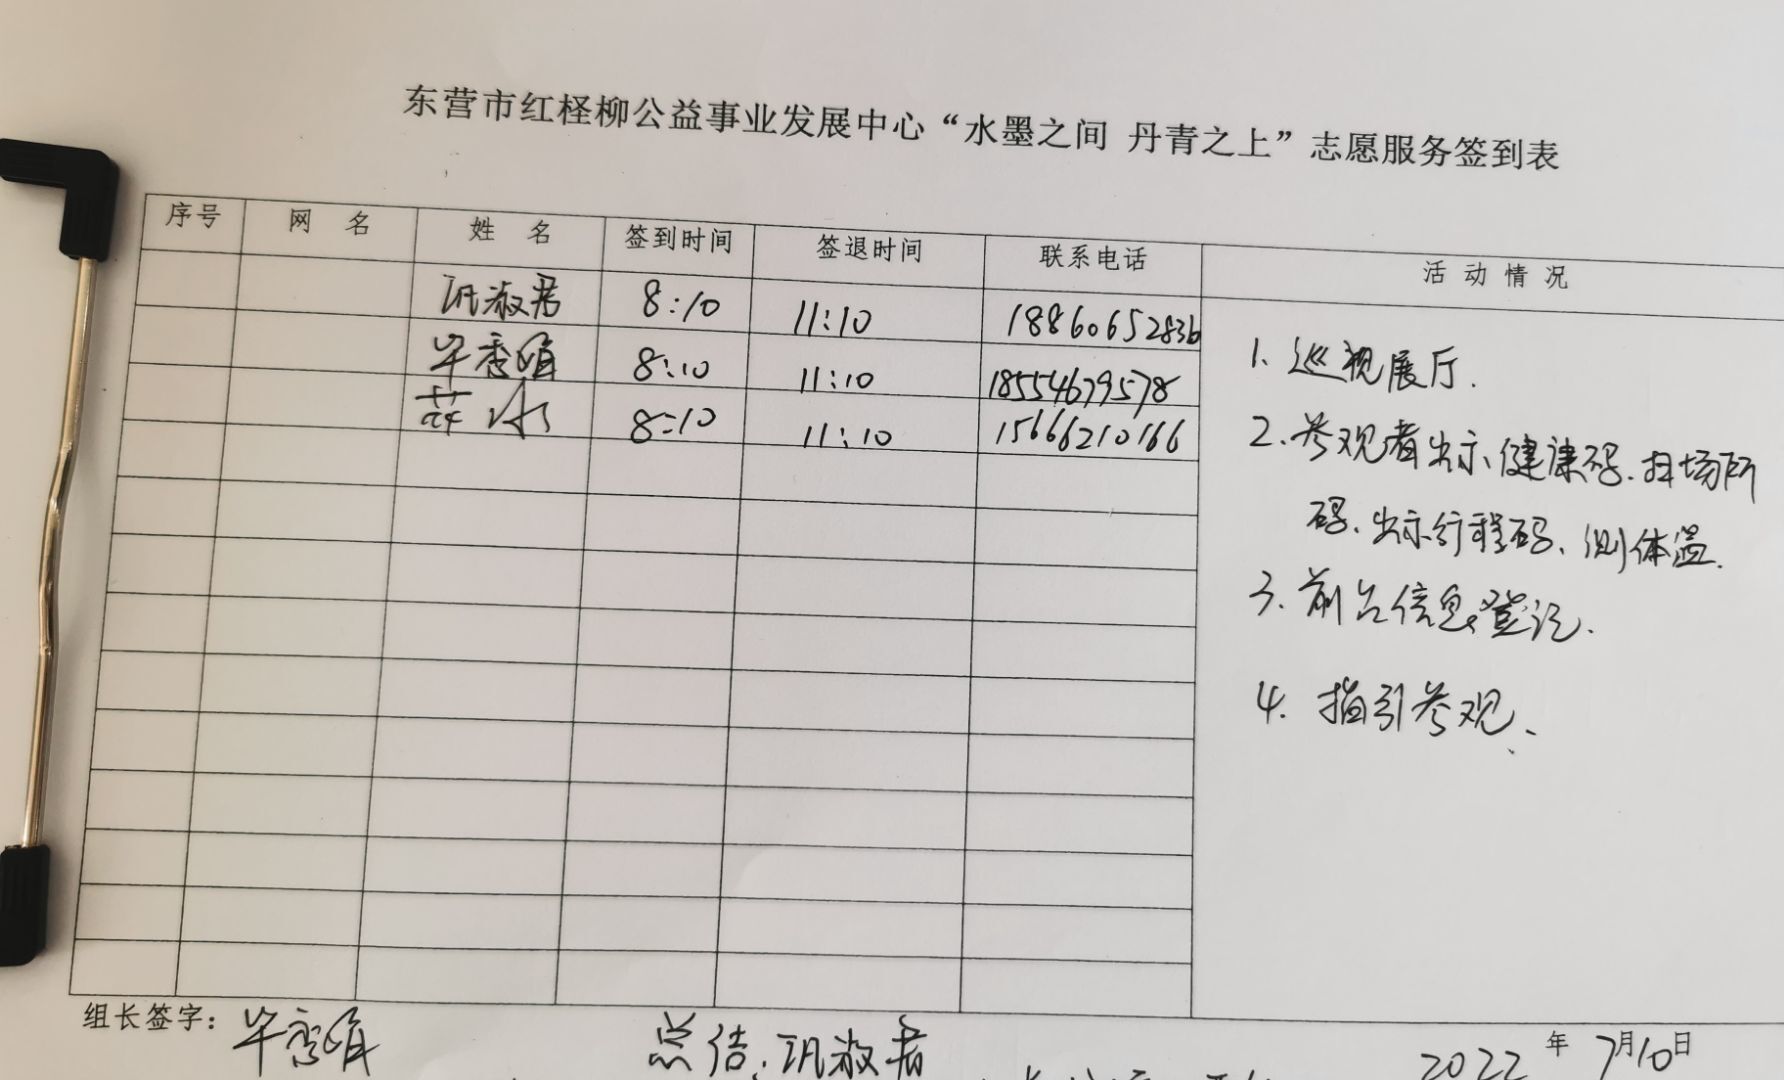 东营市红柽柳公益事业发展中心“水墨之间 丹青之上”志愿服务签到表
序号 网 名 姓 名 签到时间 签退时间 联系电话 活 动 情 况
巩淑君 8:10 11:10 18860652836
毕秀娟 8:10 11:10 18554679578
8:10 11:10 15666210166
1. 巡视展厅.
2. 参观者出示健康码.扫场所
码、出示行程码、测体温.
3. 前台信息登记.
4. 指引参观、
组长签字: 毕秀娟 总结:巩淑君 2022年7月10日